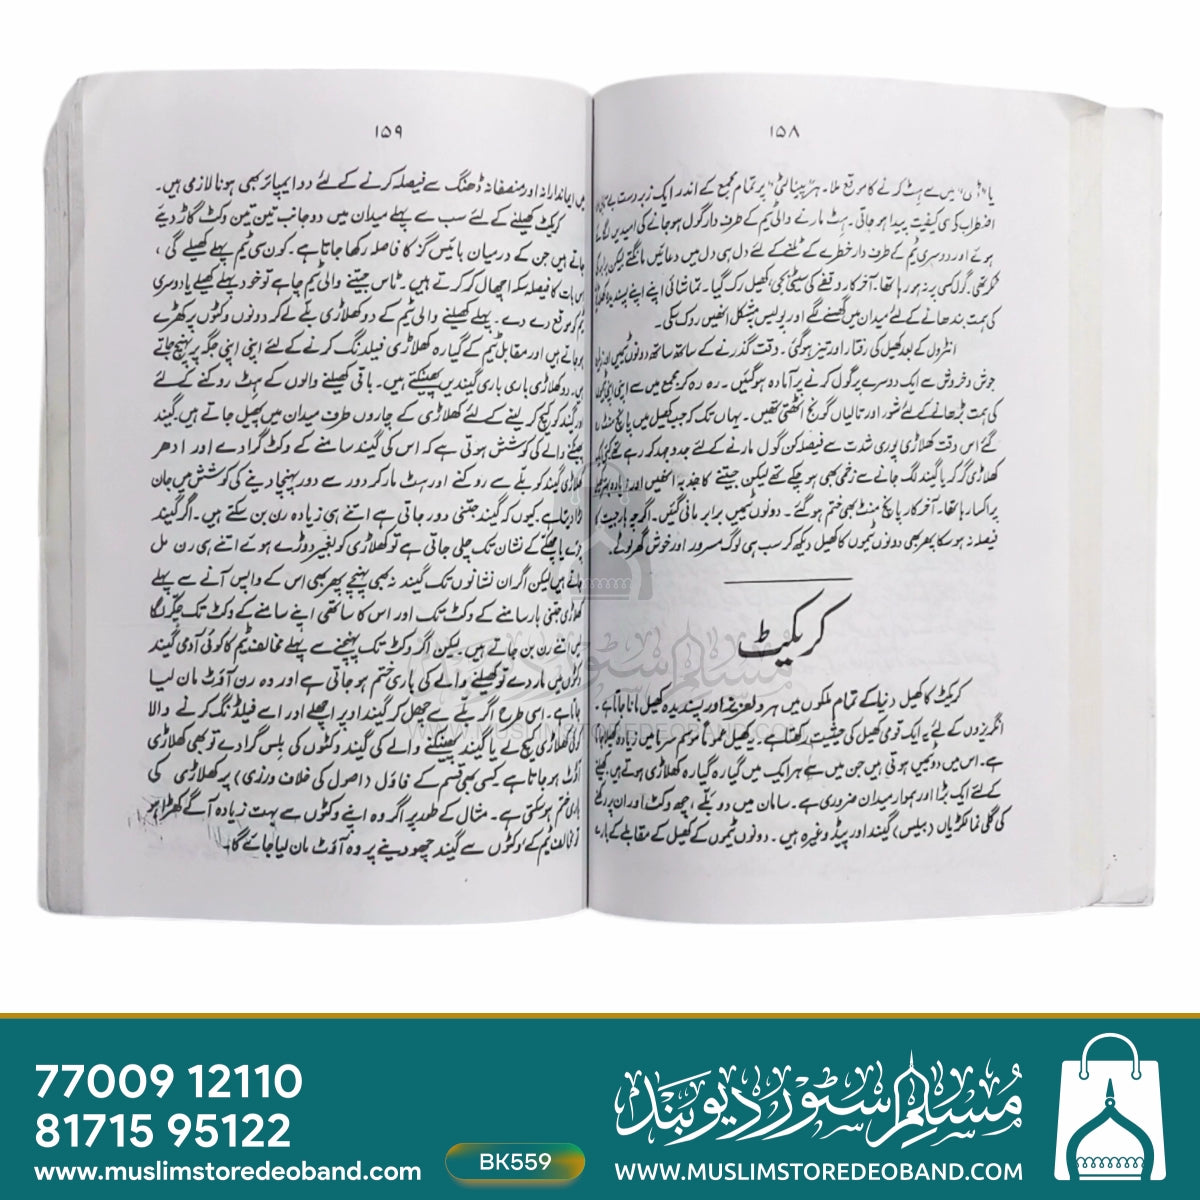 ۱۵۸
یا "ڈی" میں سے ہٹ کرنے کا موقع ملا۔ ہر "پینالٹی" پر تمام مجمع کے اندر ایک زبردست بے
اضطراب کی سی کیفیت پیدا ہو جاتی۔ ہٹ مارنے والی ٹیم کے طرف دار گول ہو جانے کی امیدیں لگائے
ہوئے اور دوسری ٹیم کے طرف دار خطرے کے ٹلنے کے لئے دل ہی دل میں دعائیں مانگتے لیکن برابر کی
ٹکر تھی۔ گول کسی پر نہ ہو رہا تھا۔ آخر کار وقفے کی سیٹی بجی، کھیل رک گیا۔ تماشائی اپنے اپنے پسندیدہ
کی ہمت بندھانے کے لئے میدان میں گھسنے لگے اور پولیس بمشکل انھیں روک سکی۔
انٹرول کے بعد کھیل کی رفتار اور تیز ہو گئی۔ وقت گذرنے کے ساتھ ساتھ دونوں ٹیمیں اور
جوش و خروش سے ایک دوسرے پر گول کرنے پر آمادہ ہو گئیں۔ رہ رہ کر مجمع میں سے اپنی اپنی
کی ہمت بڑھانے کے لئے شور اور تالیاں گونج اٹھتی تھیں۔ یہاں تک کہ جب کھیل میں پانچ منٹ رہ
گئے اس وقت کھلاڑی پوری شدت سے فیصلہ کن گول مارنے کے لئے جدوجہد کر رہے تھے کئی ایک
کھلاڑی گر کر یا گیند لگ جانے سے زخمی بھی ہو چکے تھے لیکن جیتنے کا جذبہ انھیں اور زیادہ
پر اکسا رہا تھا۔ آخر کار پانچ منٹ بھی ختم ہو گئے۔ دونوں ٹیمیں برابر مانی گئیں۔ اگرچہ ہار جیت کا
فیصلہ نہ ہو سکا پھر بھی دونوں ٹیموں کا کھیل دیکھ کر سب ہی لوگ مسرور اور خوش گھر لوٹے۔
کرکیٹ
کرکیٹ کا کھیل دنیا کے تمام ملکوں میں ہر دلعزیز اور پسندیدہ کھیل مانا جاتا ہے۔
انگریزوں کے لئے یہ ایک قومی کھیل کی حیثیت رکھتا ہے۔ یہ کھیل عموماً موسم سرما میں زیادہ کھیلا جاتا
ہے۔ اس میں دو ٹیمیں ہوتی ہیں جن میں سے ہر ایک میں گیارہ گیارہ کھلاڑی ہوتے ہیں۔ کھیلنے
کے لئے ایک بڑا اور ہموار میدان ضروری ہے۔ سامان میں دو بلّے، چھ وکٹ اور ان پر رکھنے
کی گلی نما لکڑیاں (بیلس) گیند اور پیڈ وغیرہ ہیں۔ دونوں ٹیموں کے کھیل کے مقابلے کے بارے
۱۵۹
میں ایماندارانہ اور منصفانہ ڈھنگ سے فیصلہ کرنے کے لئے دو ایمپائر بھی ہونا لازمی ہیں۔
کرکٹ کھیلنے کے لئے سب سے پہلے میدان میں دو جانب تین تین وکٹ گاڑ دیئے
جاتے ہیں جن کے درمیان بائیس گز کا فاصلہ رکھا جاتا ہے۔ کون سی ٹیم پہلے کھیلے گی،
اس بات کا فیصلہ سکہ اچھال کر کرتے ہیں۔ ٹاس جیتنے والی ٹیم چاہے تو خود پہلے کھیلے یا دوسری
ٹیم کو موقع دے دے۔ پہلے کھیلنے والی ٹیم کے دو کھلاڑی بلّے لے کر دونوں وکٹوں پر کھڑے
ہو جاتے ہیں اور مقابل ٹیم کے گیارہ کھلاڑی فیلڈنگ کرنے کے لئے اپنی اپنی جگہ پر پہنچ جاتے
ہیں۔ دو کھلاڑی باری باری گیندیں پھینکتے ہیں۔ باقی کھیلنے والوں کے ہٹ روکنے کے لئے
اور گیند کو کیچ کر لینے کے لئے کھلاڑی کے چاروں طرف میدان میں پھیل جاتے ہیں۔ گیند
پھینکنے والے کی کوشش ہوتی ہے کہ اس کی گیند سامنے کے وکٹ گرا دے اور ادھر
کھلاڑی گیند کو بلّے سے روکنے اور ہٹ مار کر دور سے دور پہنچا دینے کی کوشش میں جان
لڑا دیتا ہے۔ کیوں کہ گیند جتنی دور جاتی ہے اتنے ہی زیادہ رن بن سکتے ہیں۔ اگر گیند
چوکے یا چھکے کے نشان تک چلی جاتی ہے تو کھلاڑی کو بغیر دوڑے ہوئے اتنے ہی رن مل
جاتے ہیں لیکن اگر ان نشانوں تک گیند نہ بھی پہنچے پھر بھی اس کے واپس آنے سے پہلے
کھلاڑی جتنی بار سامنے کے وکٹ تک اور اس کا ساتھی اپنے سامنے کے وکٹ تک چکر لگا
لیں اتنے رن بن جاتے ہیں۔ لیکن اگر وکٹ تک پہنچنے سے پہلے مخالف ٹیم کا کوئی آدمی گیند
وکٹوں میں مار دے تو کھیلنے والے کی باری ختم ہو جاتی ہے اور وہ رن آؤٹ مان لیا
جاتا ہے۔ اسی طرح اگر بلّے سے چھل کر گیند اوپر اچھلے اور اسے فیلڈنگ کرنے والا
کوئی کھلاڑی کیچ لے لے یا گیند پھینکنے والے کی گیند وکٹوں کی بیلس گرا دے تو بھی کھلاڑی
آؤٹ ہو جاتا ہے۔ کسی بھی قسم کے فاؤل (اصول کی خلاف ورزی) پر کھلاڑی کی
باری ختم ہو سکتی ہے۔ مثال کے طور پر اگر وہ اپنے وکٹوں سے بہت زیادہ آگے کھڑا ہو
تو مخالف ٹیم کے وکٹوں سے گیند چھو دینے پر وہ آؤٹ مان لیا جائے گا۔
مسلم سٹور دیوبند
WWW.MUSLIMSTOREDEOBAND.COM
77009 12110
81715 95122
www.muslimstoredeoband.com
BK559
مسلم سٹور دیوبند
WWW.MUSLIMSTOREDEOBAND.COM